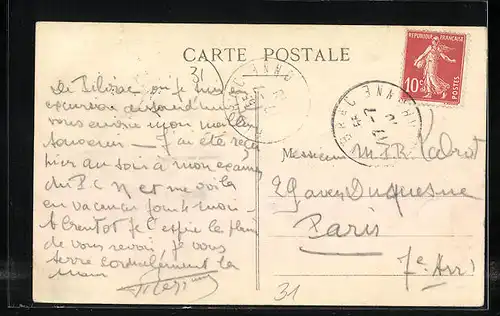 CARTE POSTALE
31
RÉPUBLIQUE FRANÇAISE
10 c
POSTES
17 - 7
De Pibrac où je suis en
excursion aujourd'hui
vous envoie mon meilleur
souvenir — J'ai été reçu
hier au soir à mon examen
du P.C.N et me voilà
en vacances pour 4 mois
A bientôt je espère le plaisir
de vous revoir je vous
serre cordialement la
main
Monsieur
29 aven Duquesne
Paris
7e Arrt
31